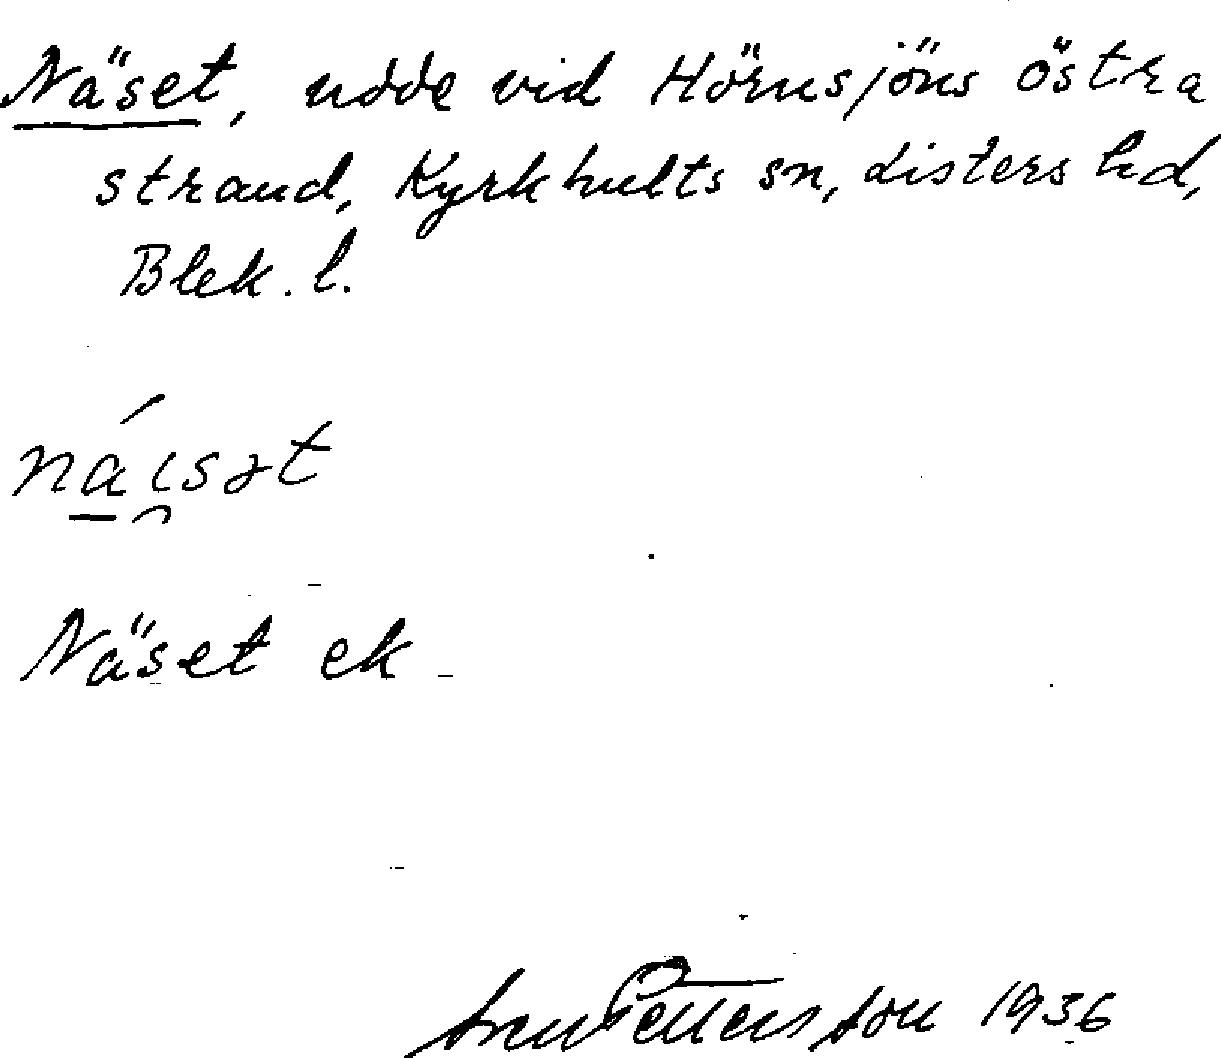 Näset, udde vid Hörnsjöns östra
strand, Kyrkhults sn, Listers hd,
Blek. l.
Näset ek
Pettersson 1936